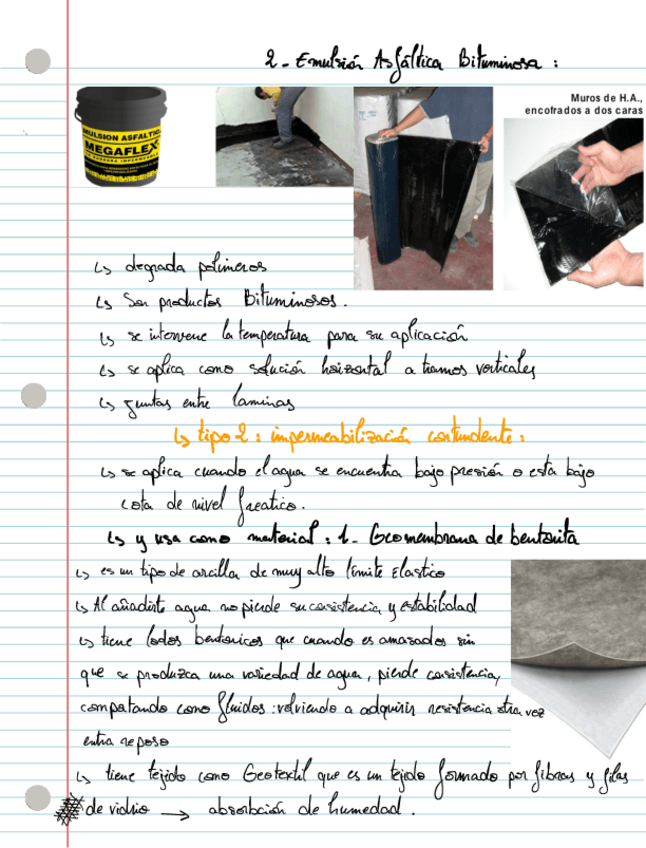 2 - Emulsión Asfáltica Bituminosa :
Muros de H.A.,
encofrados a dos caras
EMULSION ASFALTIC
MEGAFLEX
↳ degrada polimeros
↳ Son productos Bituminosos.
↳ se interviene la temperatura para su aplicación
↳ se aplica como solución horizontal a tramos verticales
↳ juntas entre laminas
↳ tipo 2 : impermeabilización contundente :
↳ se aplica cuando el agua se encuentra bajo presión o esta bajo
cota de nivel freatico.
↳ y usa como material : 1 - Geomembrana de bentonita
↳ es un tipo de arcilla de muy alto límite Elastico
↳ Al añadirle agua no pierde su consistencia y estabilidad
↳ tiene lodos bentonicos que cuando es amasados sin
que se produzca una variedad de agua, pierde consistencia,
compotando como fluidos : volviendo a adquirir resistencia otra vez
entra reposo
↳ tiene tejido como Geotextil que es un tejido formado por fibras y filas
de vidrio → absorbción de humedad.